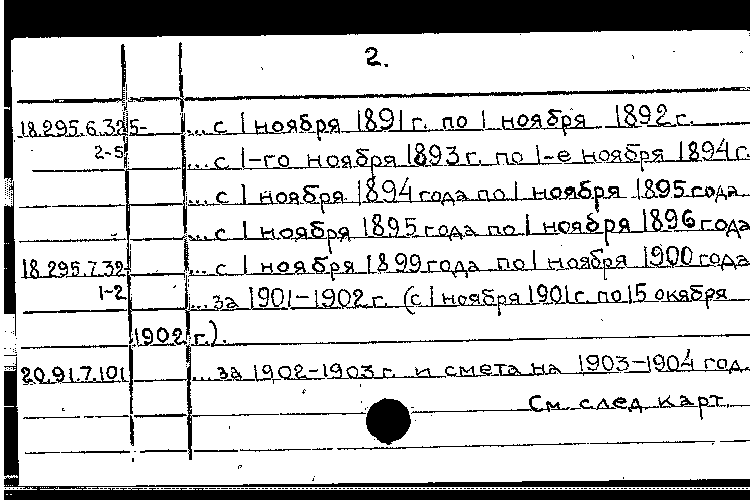 2.
18.295.6.325- ...с 1 ноября 1891 г. по 1 ноября 1892 г.
2-5 ...с 1-го ноября 1893 г. по 1-е ноября 1894 г.
...с 1 ноября 1894 года по 1 ноября 1895 года
...с 1 ноября 1895 года по 1 ноября 1896 года
18.295.7.32 ...с 1 ноября 1899 года по 1 ноября 1900 года
1-2 ...за 1901-1902 г. (с 1 ноября 1901 г. по 15 окября
1902 г.).
20.91.7.101 ...за 1902-1903 г. и смета на 1903-1904 год.
См. след. карт.